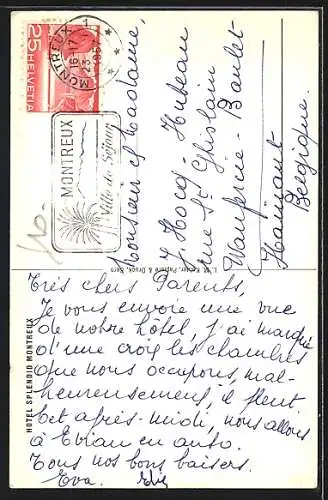 25
HELVETIA
MONTREUX 1
16-17
MONTREUX
Ville de Séjour
Monsieur et Madame,
J. Hocq - Hubeau
rue St Ghislain
Hainaut
Belgique.
HOTEL SPLENDID MONTREUX
Très chers Parents,
Je vous envoie une vue
de notre hôtel, j'ai marqué
d'une croix les chambres
que nous occupons, mal-
heureusement, il pleut
Cet après-midi, nous allons
à Evian en auto.
Tous nos bons baisers.
Eva.